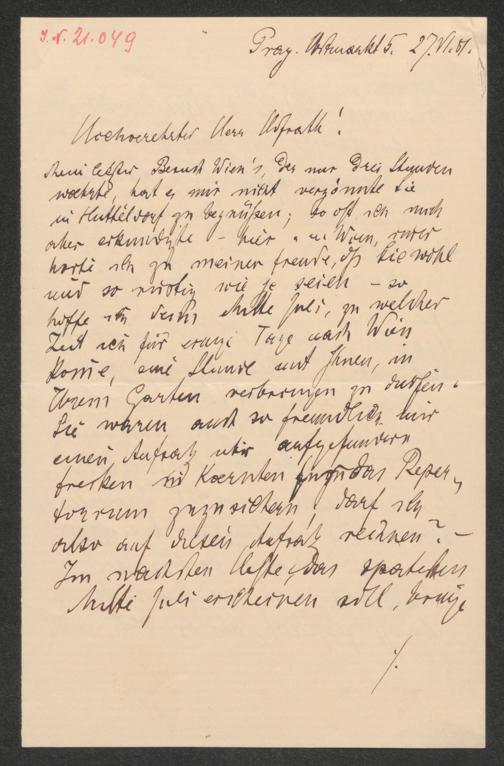 J.N. 21.049
Prag. Obstmarkt 5. 27/VI.01.
Hochverehrter Herr Hofrath!
Mein letzter Besuch Wien's, der nur drei Stunden
waehrte, hat es mir nicht vergönnt Sie
in Hütteldorf zu begrüßen; so oft ich mich
aber erkundigte – hier u. in Wien,
hörte ich zu meiner Freude, dß Sie wohl
und so rüstig wie je seien – so
hoffe ich denn Mitte Juli, zu welcher
Zeit ich für einige Tage nach Wien
komme, eine Stunde mit Ihnen, in
Ihrem Garten verbringen zu dürfen.
Sie waren auch so freundlich mir
einen Aufsatz über aufgefundene
Fresken in Kaernten für das Reper-
torium zuzusichern, darf ich
also auf diesen Aufsatz rechnen? –
Im nächsten Hefte, das spätestens
Mitte Juli erscheinen soll, bringe
./.